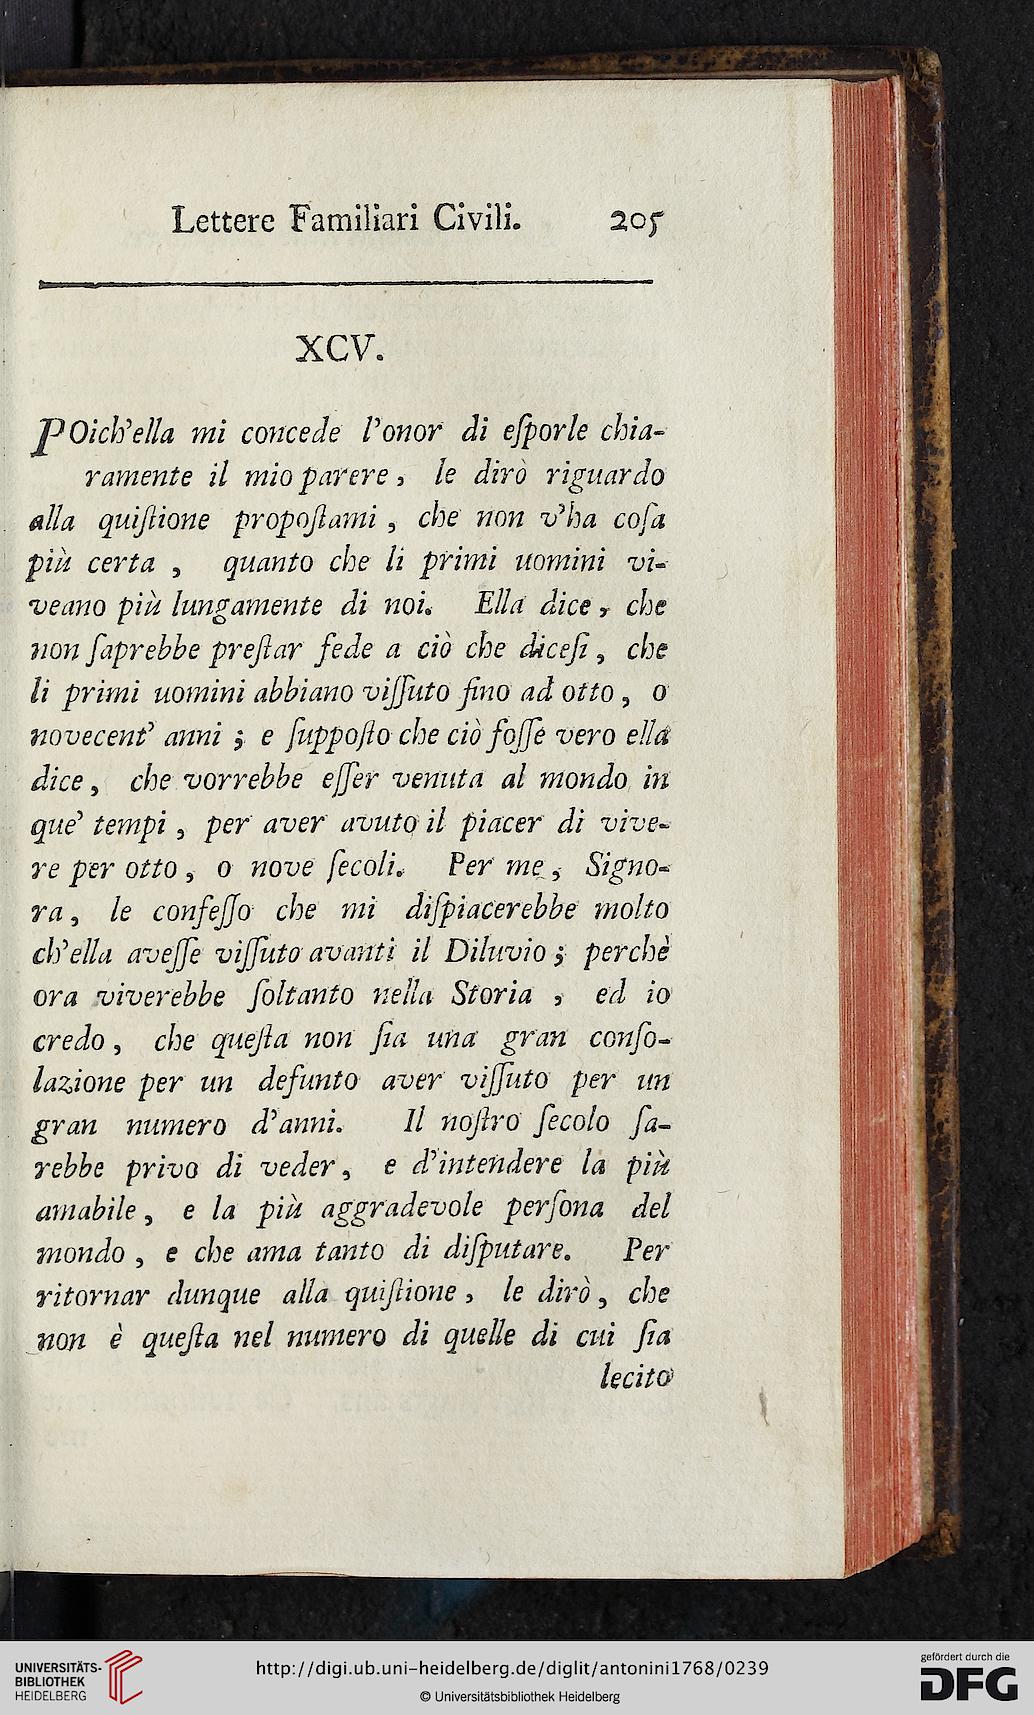 Lettere Familiari Civili. 205
XCV.
POich'ella mi concede l'onor di eſporle chia-
ramente il mio parere, le dirò riguardo
alla quiſtione propoſtami, che non v'ha coſa
più certa, quanto che li primi uomini vi-
veano più lungamente di noi. Ella dice, che
non ſaprebbe preſtar fede a ciò che diceſi, che
li primi uomini abbiano viſſuto fino ad otto, o
novecent' anni; e ſuppoſto che ciò foſſe vero ella
dice, che vorrebbe eſſer venuta al mondo in
que' tempi, per aver avuto il piacer di vive-
re per otto, o nove ſecoli. Per me, Signo-
ra, le confeſſo che mi diſpiacerebbe molto
ch'ella aveſſe viſſuto avanti il Diluvio; perchè
ora viverebbe ſoltanto nella Storia, ed io
credo, che queſta non ſia una gran conſo-
lazione per un defunto aver viſſuto per un
gran numero d'anni. Il noſtro ſecolo ſa-
rebbe privo di veder, e d'intendere la più
amabile, e la più aggradevole perſona del
mondo, e che ama tanto di diſputare. Per
ritornar dunque alla quiſtione, le dirò, che
non è queſta nel numero di quelle di cui ſia
lecito
UNIVERSITÄTS-
BIBLIOTHEK
HEIDELBERG
http://digi.ub.uni-heidelberg.de/diglit/antonini1768/0239
© Universitätsbibliothek Heidelberg
gefördert durch die
DFG